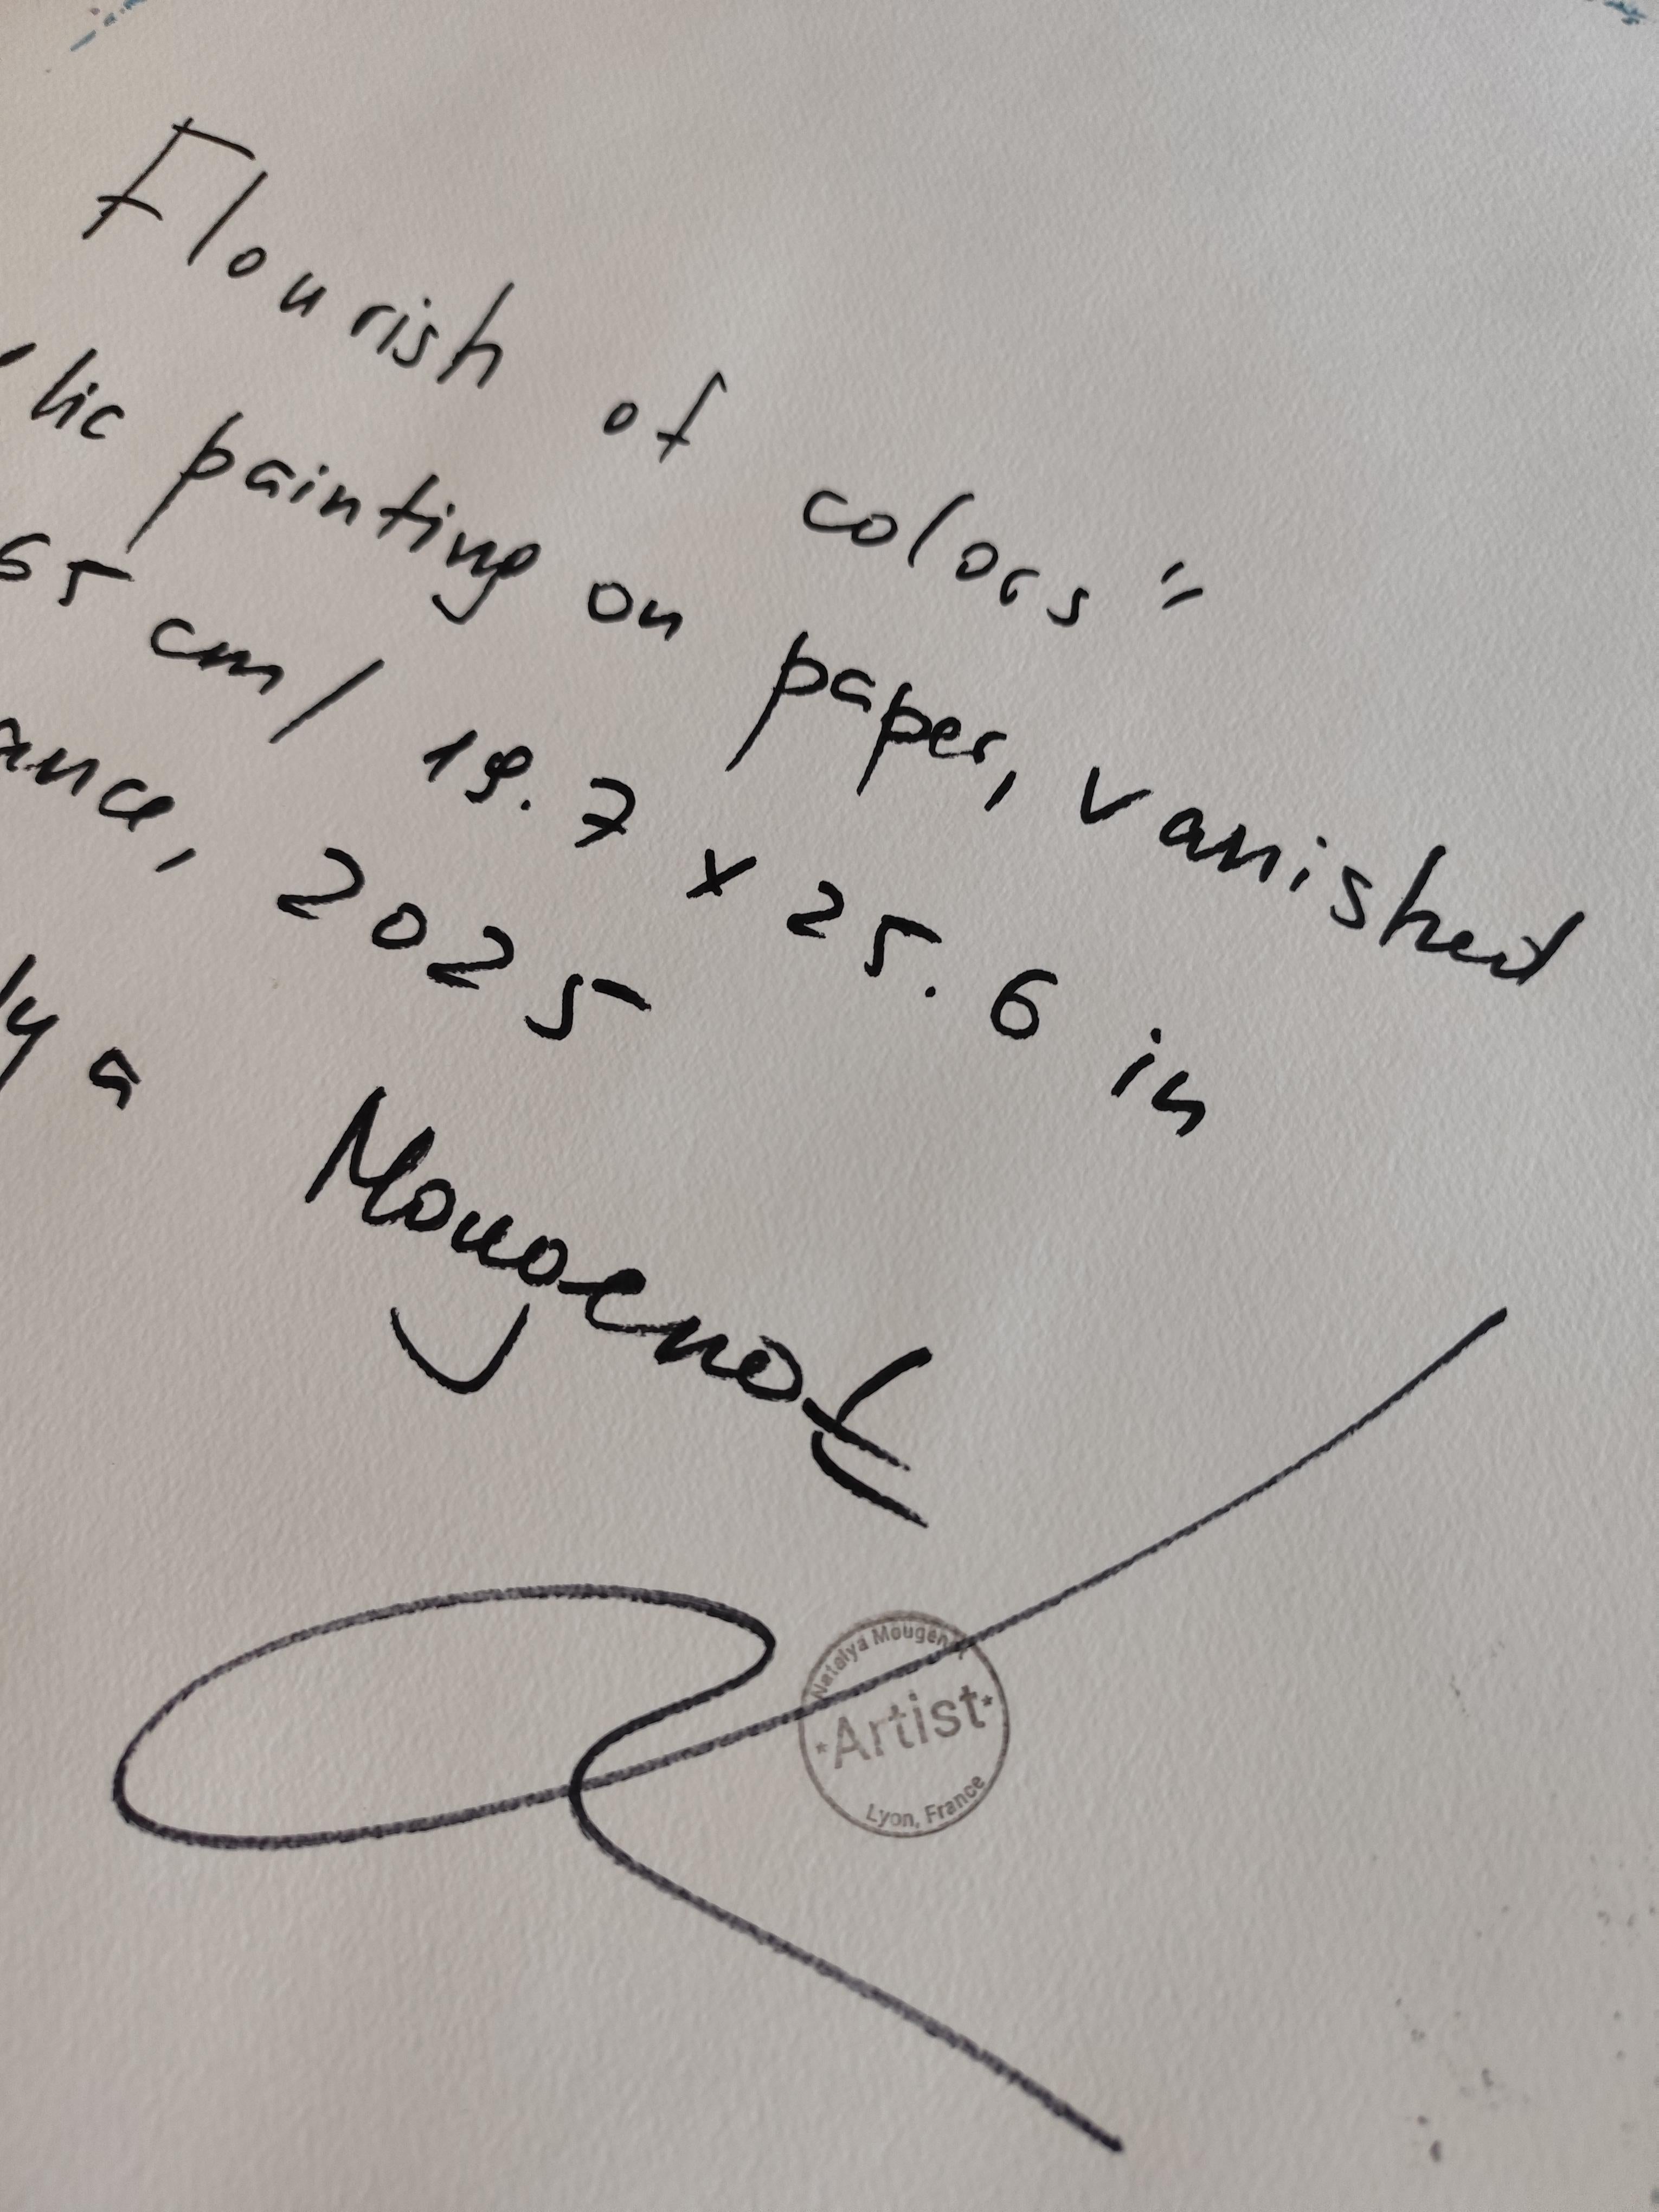 Flourish of colors"
lic painting on paper, vanished
65 cm/ 19.7 x 25.6 in
ance, 2025
lya Mougenot
Natalya Mougenot
*Artist*
Lyon, France